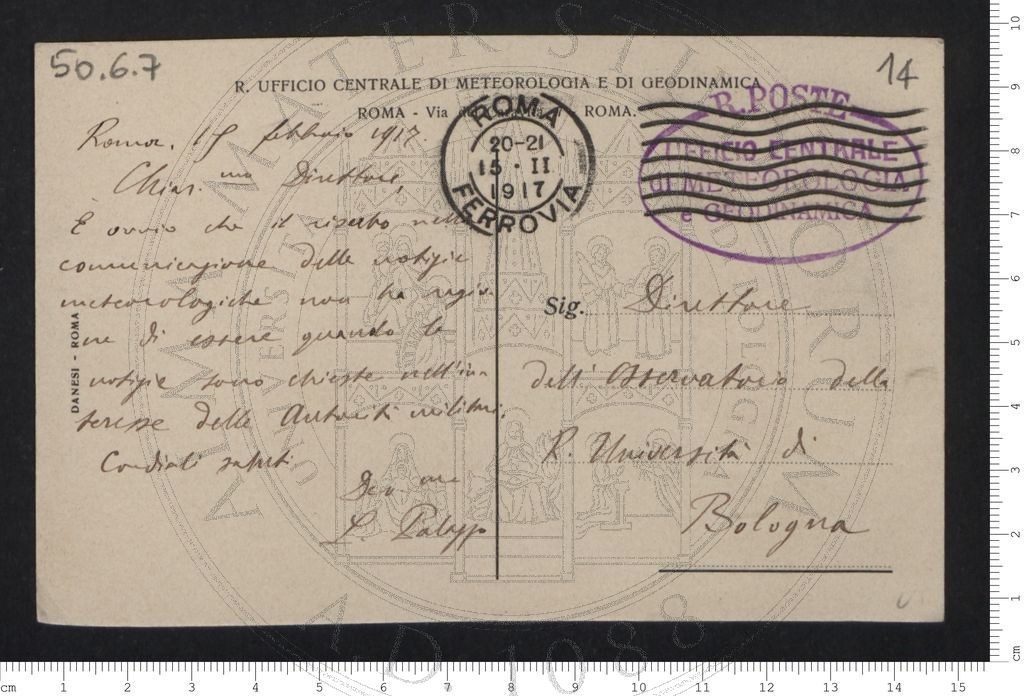 50.6.7
14
R. UFFICIO CENTRALE DI METEOROLOGIA E DI GEODINAMICA
ROMA - Via ROMA.
R. POSTE
UFFICIO CENTRALE
di METEOROLOGIA
e GEODINAMICA
ROMA
20-21
15 · II
1917
FERROVIA
Roma, 15 febbraio 1917.
Chiar.mo Direttore,
È ovvio che il riserbo nella
comunicazione delle notizie
meteorologiche non ha ragio-
ne di essere quando le
notizie sono chieste nell'in-
teresse delle Autorità militari.
Cordiali saluti.
Dev.mo
L. Palazzo
DANESI - ROMA
Sig. Direttore
dell'Osservatorio della
R. Università di
Bologna
ALMA MATER STUDIORUM
A.D. 1088
cm 1 2 3 4 5 6 7 8 9 10 11 12 13 14 15
cm 1 2 3 4 5 6 7 8 9 10